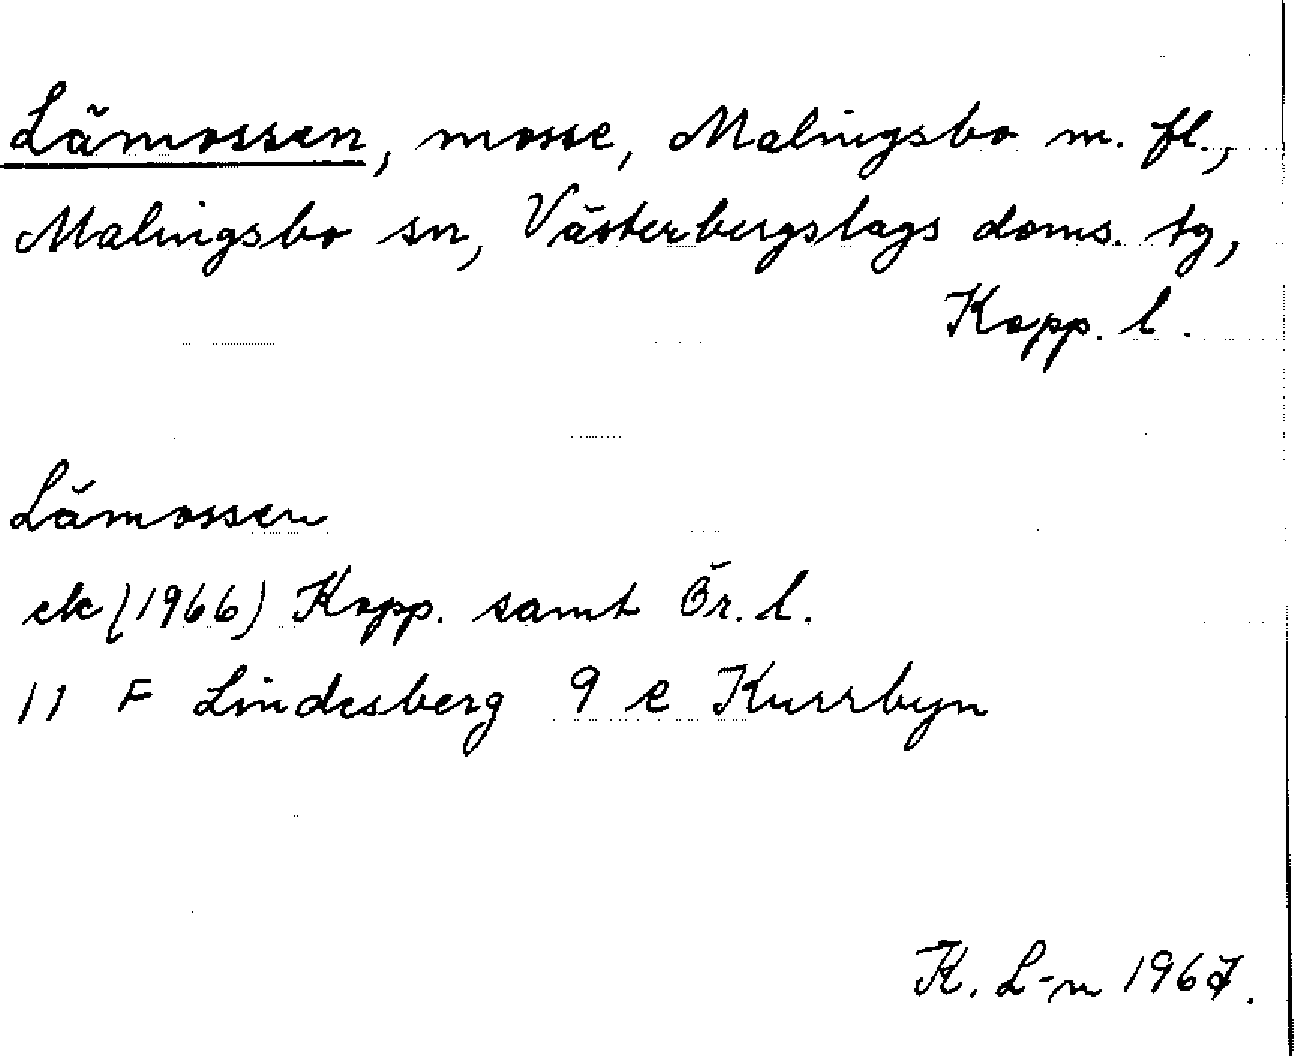 Lämossen, mosse, Malingsbo m. fl.,
Malingsbo sn, Västerbergslags doms. tg,
Kopp. l.
Lämossen
ek (1966) Kopp. samt Ör. l.
11 F Lindesberg 9 e Kurrbyn
K. L-n 1967.